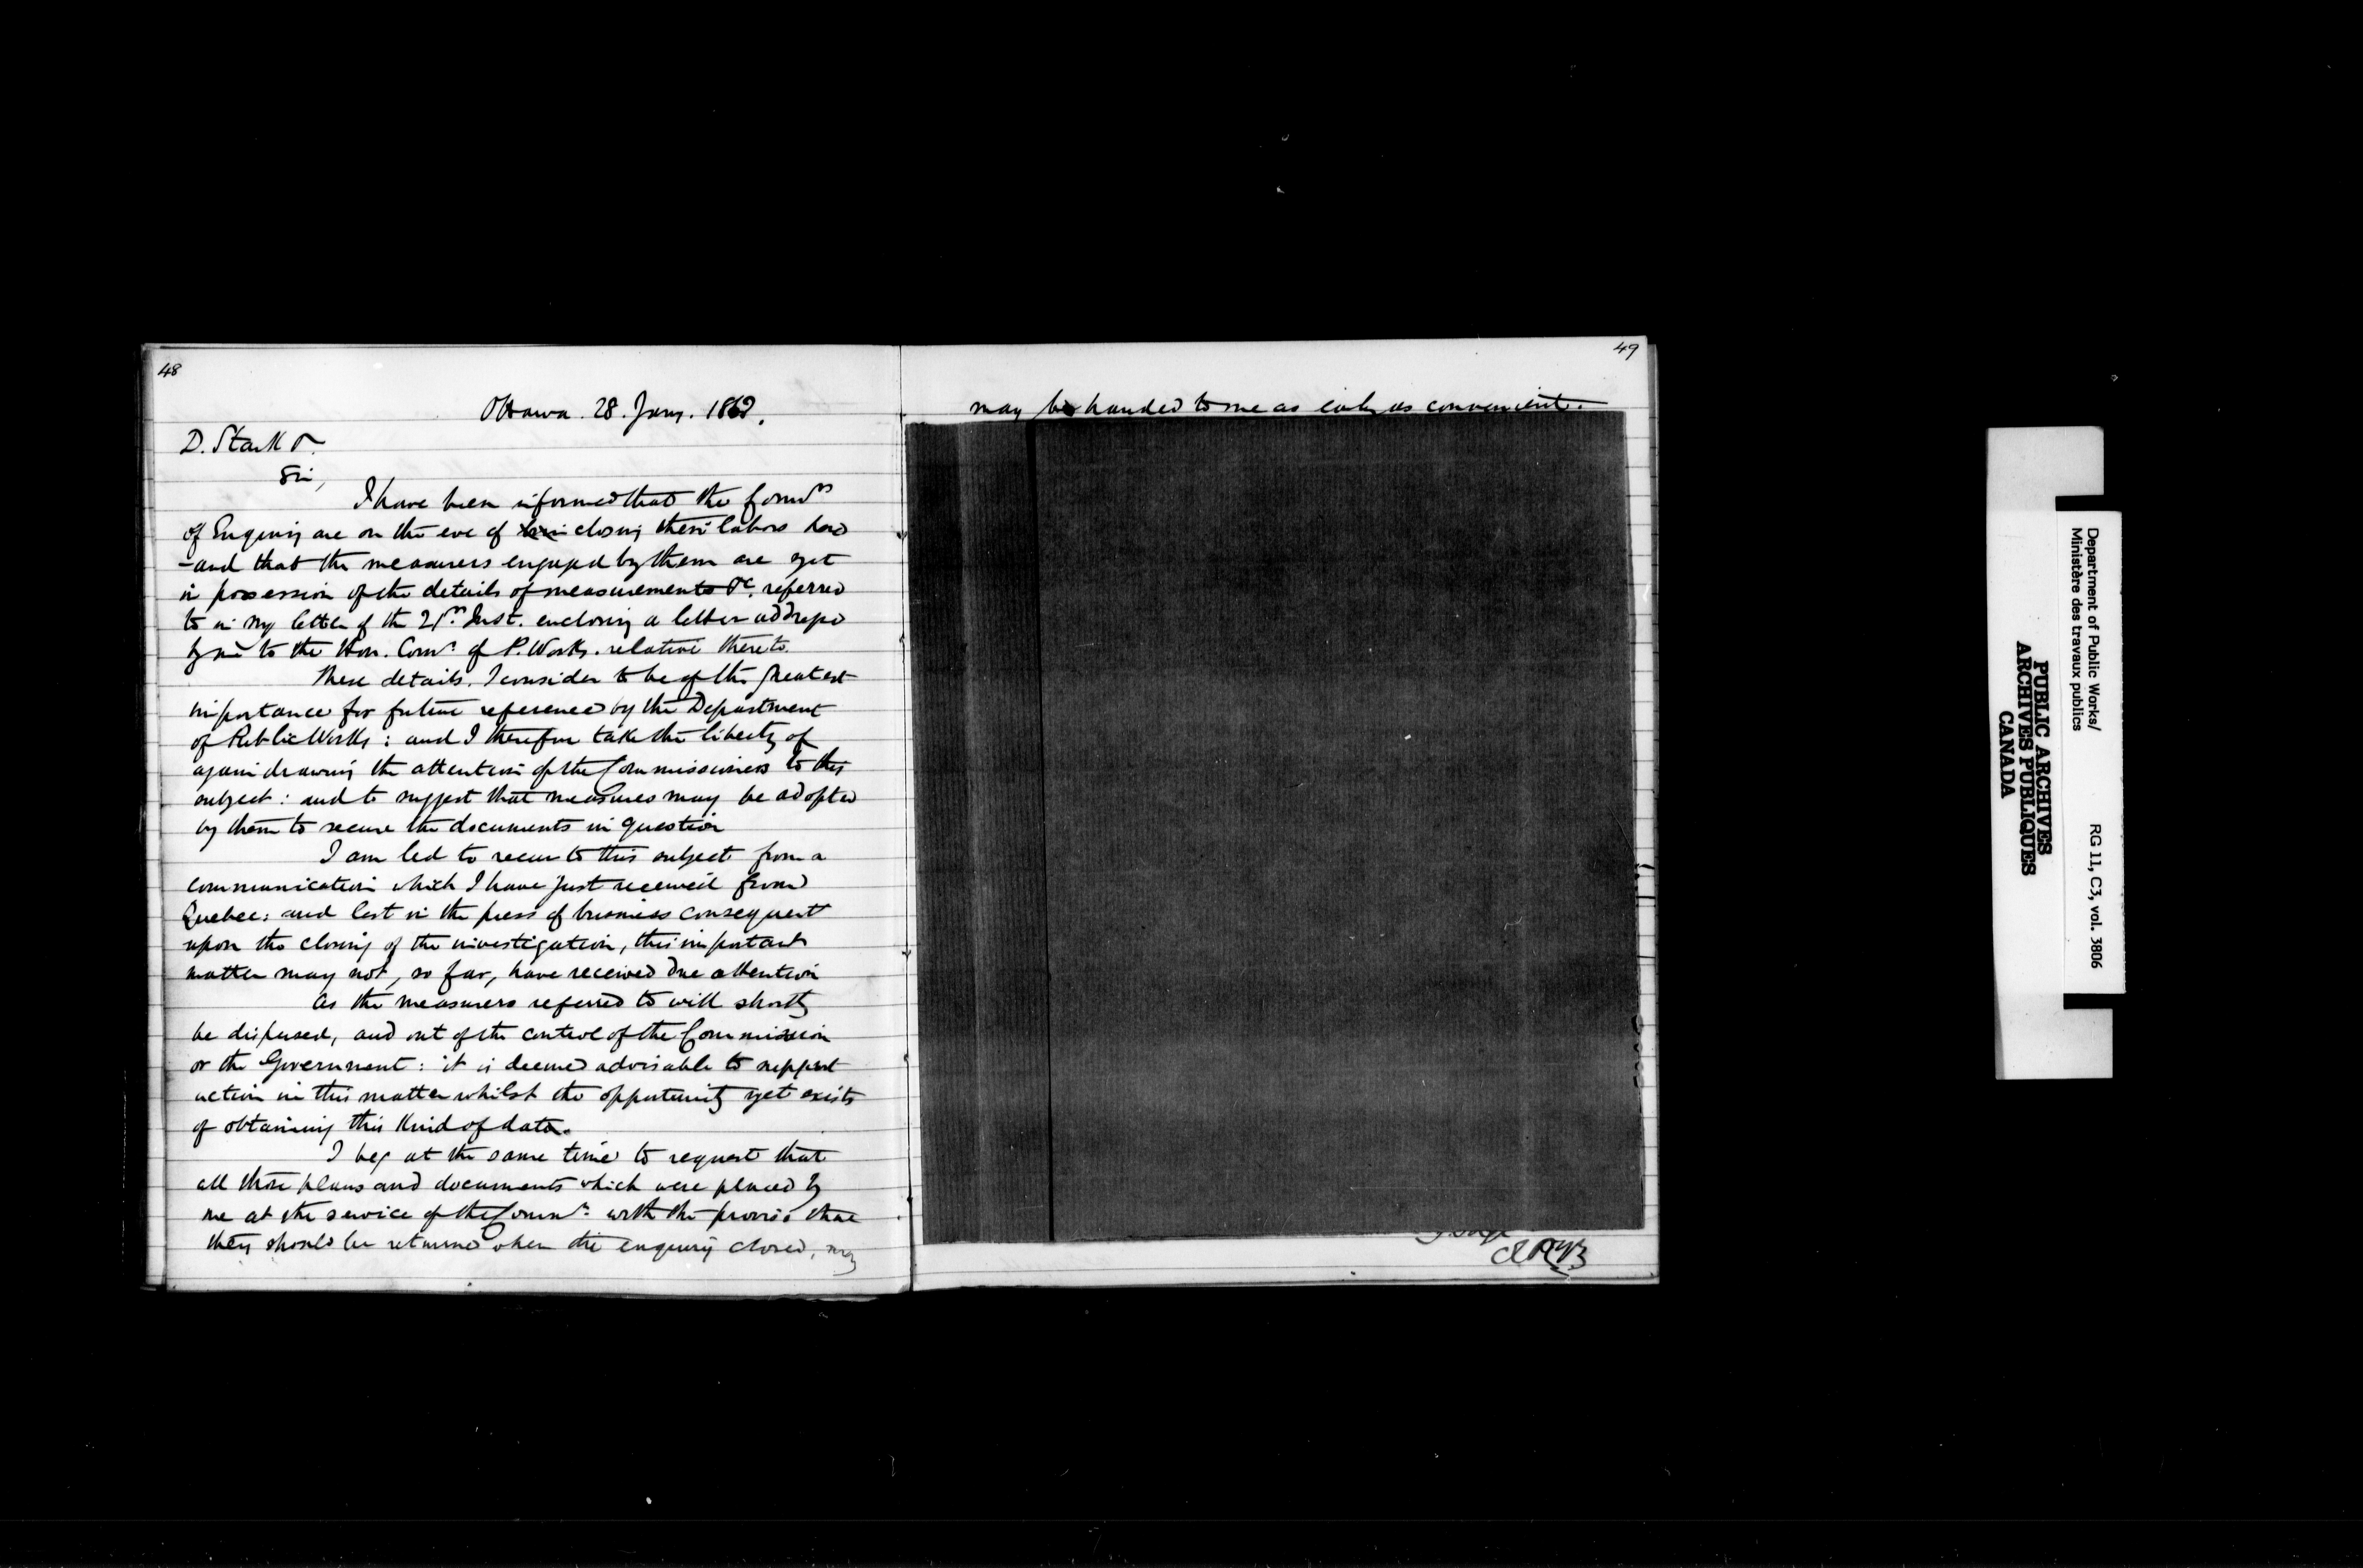 48
Ottawa. 28. Jany. 1863.
D. Stark
Sir,
I have been informed that the Comrs
of Enquiry are on the eve of closing their labors here
- and that the measurers engaged by them are yet
in possession of the details of measurements &c. referred
to in my letter of the 21st Inst. enclosing a letter addressed
by me to the Hon. Comr of P. Works. relative thereto.
These details. I consider to be of the greatest
importance for future reference by the Department
of Public Works: and I therefore take the liberty of
again drawing the attention of the Commissioners to this
subject: and to suggest that measures may be adopted
by them to secure the documents in question
I am led to recur to this subject from a
communication which I have just received from
Quebec: and lest in the press of business consequent
upon the closing of the investigation, this important
matter may not, so far, have received due attention
As the measurers referred to will shortly
be dispersed, and out of the control of the Commission
or the Government: it is deemed advisable to suggest
action in this matter whilst the opportunity yet exists
of obtaining this kind of data.
I beg at the same time to request that
all those plans and documents which were placed by
me at the service of the Commrs with the proviso that
they should be returned when the enquiry closed, may
49
may be handed to me as early as convenient.
Department of Public Works/
Ministère des travaux publics
RG 11, C3, vol. 3806
PUBLIC ARCHIVES
ARCHIVES PUBLIQUES
CANADA